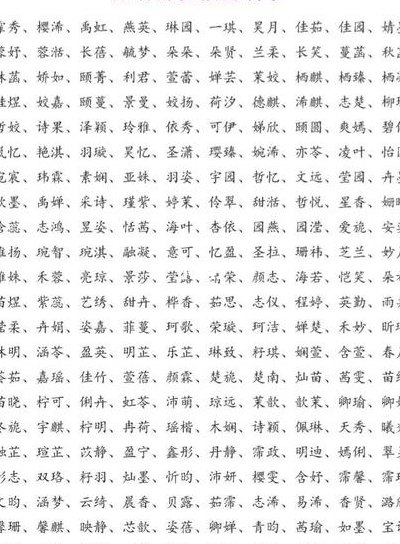 霏秀、樱浠、禹虹、燕英、琳园、一琪、昊月、佳茹、佳园、婧
蓉妤、蓉湉、长蓓、毓梦、朵朵、朵贤、兰柔、长笑、蔓菡、秋
菡、娇如、颐菁、利君、萱蕾、婵芸、茉姣、栖麒、栖臻、栖
煜、姣嘉、颐蔓、景曼、姣扬、荷汐、德麒、浠麒、志楚、柳
姣、诗果、泽颖、玲雅、依秀、可伊、娣欣、颐圆、爽嫣、碧
忆、艳淇、羽璇、昊忆、圣潇、璎臻、婉浠、亦苓、凌叶、怡
宸、玮霏、素娴、亚姝、羽姿、宇园、哲忆、文远、莹园、卉
墨、禹婵、采诗、瑾紫、婷茉、伶翠、甜湉、哲悦、星香、姗
蕊、志鸿、昱姿、恬茜、海叶、杏依、园燕、园滢、爱旎、安
扬、琬智、琬淇、融凝、意可、忆盈、圣拉、珊祎、芝兰、妙
姝、禾蓉、亮琼、景莎、莹、荣、颜志、海若、恺笑、朵
煜、紫蕊、艺绣、甜卉、桦香、茹思、志仪、程婷、英勤、雨
柔、卉娟、姿嘉、菲蔓、珂歌、荣璇、珂洁、婵楚、禾妙、昕
明、涵苓、盈英、明芷、乐芷、琳致、籽琪、娴萱、含萱、春
茹、嘉瑶、佳竹、萱蓓、颜霖、楚旎、楚南、灿苗、茜雯、苗
晓、柠可、俐卉、虹苓、沛萌、琼远、茉歆、歆茉、卿瑜、卿
旎、宇麒、柠明、冉荷、瑶楷、木娴、诗颖、佩琳、天秀、曦
芷、瑄芷、苡静、盈宁、鑫彤、丹静、霈政、明迪、嫣俐、翠
志、双珞、籽羽、灿墨、忻昀、沛妍、樱雯、含妤、霈馨、霏
昀、涵梦、云绮、晨香、贝露、茹霈、志浠、易浠、香贤、潞
珊、馨麒、映静、芯歆、姿蓓、卿婵、青昀、茜瑜、如墨、宝